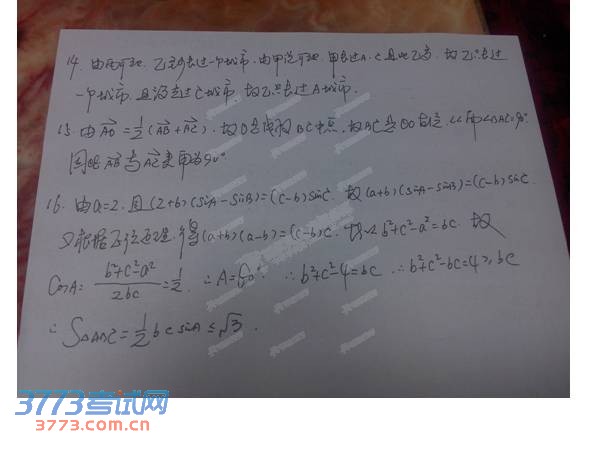 14. 由丙可知, 乙至少去过一个城市, 由甲说可知, 甲去过A、C且比乙多, 故乙只去过
一个城市, 且没去过C城市, 故乙只去过A城市.
15. 由AO=1/2(AB+AC), 故O是线段BC中点, 故BC是⊙O直径, 从而∠BAC=90°
因此AB与AC夹角为90°
16. 由a=2. 且(2+b)(sinA-sinB)=(c-b)sinC. 故(a+b)(sinA-sinB)=(c-b)sinC.
又根据正弦定理, 得(a+b)(a-b)=(c-b)c. 所以b²+c²-a²=bc. 故
CosA=(b²+c²-a²)/2bc=1/2. ∴A=60°. ∴b²+c²-4=bc ∴b²+c²-bc=4≥bc
∴S△ABC=1/2bcsinA≤√3.
3773考试网
3773.com.cn